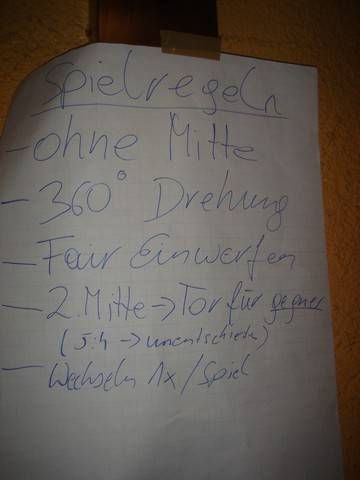 Spielregeln
- ohne Mitte
- 360° Drehung
- Fair Einwerfen
- 2. Mitte -> Tor für gegner
(5:4 -> unentschieden)
- Wechseln 1x/Spiel